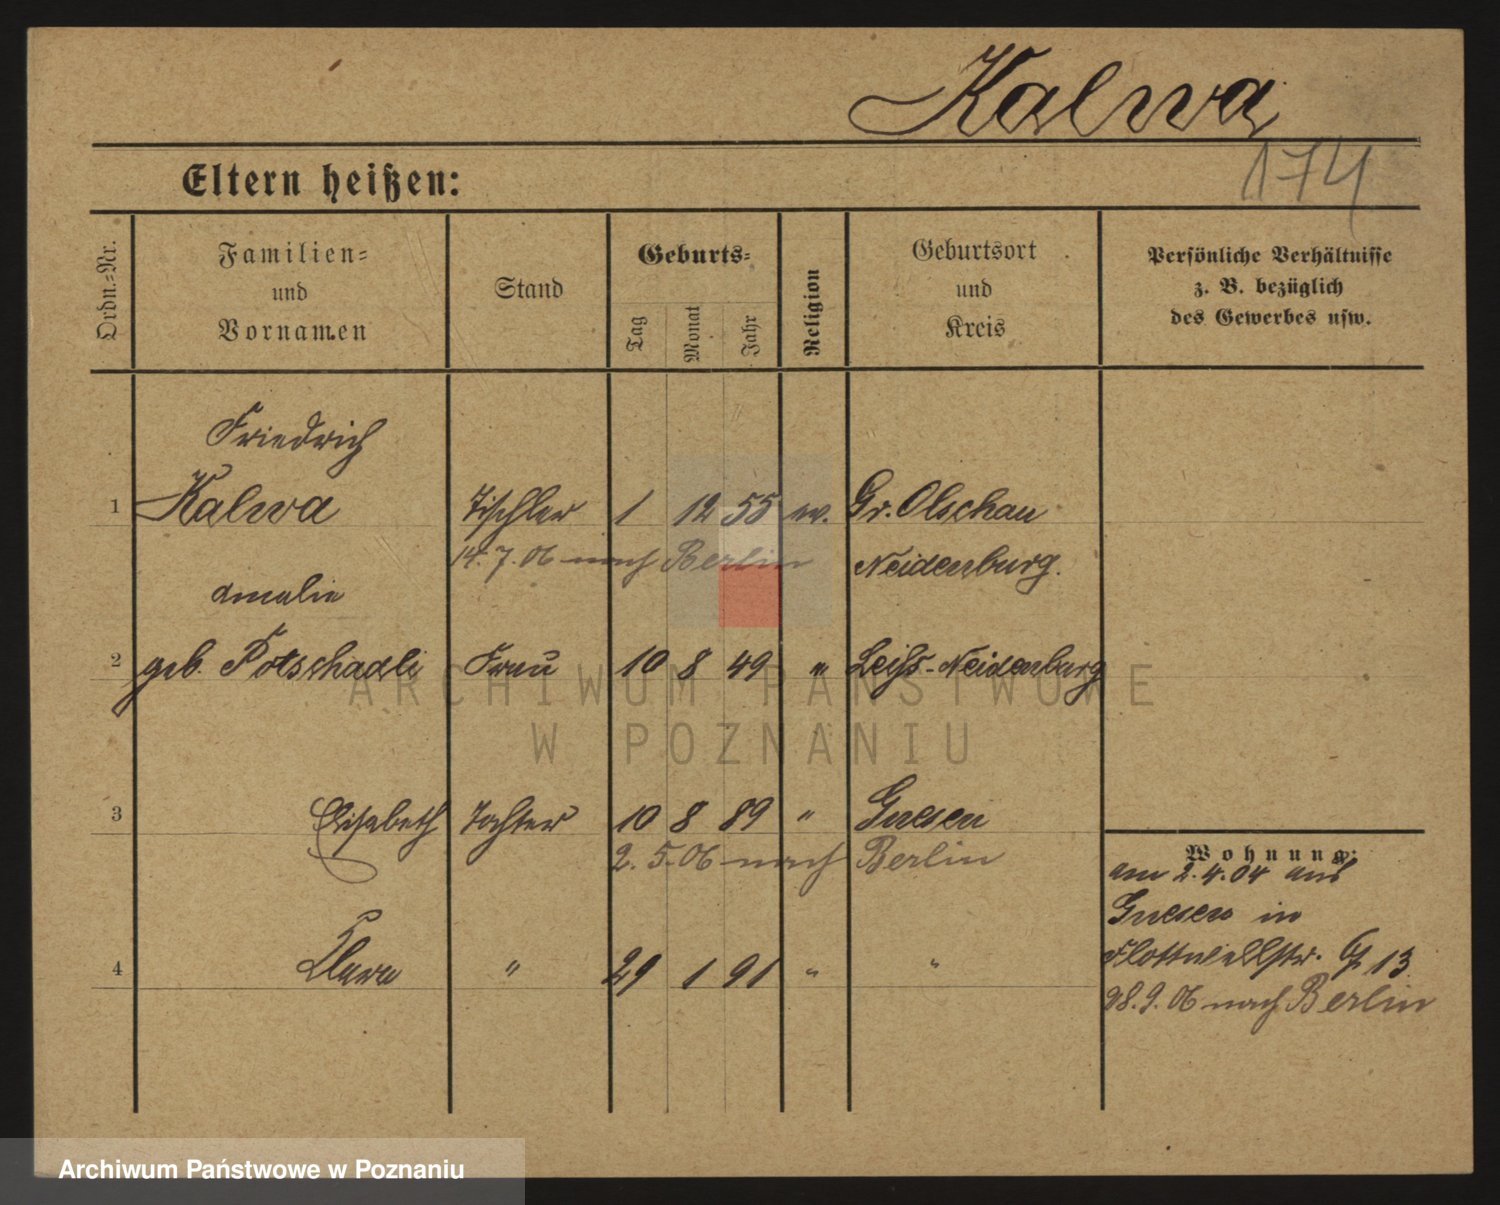 Kalwa
174
Eltern heißen:
Ordn.-Nr.
Familien-
und
Vornamen
Stand
Geburts-
Tag
Monat
Jahr
Religion
Geburtsort
und
Kreis
Persönliche Verhältnisse
z. B. bezüglich
des Gewerbes usw.
Friedrich
1 Kalwa Tischler 1 12 55 ev. Gr. Olschau
14.7.06 nach Berlin Neidenburg.
Amalie
2 geb. Potschadli Frau 10 8 49 " Leihs-Neidenburg
3 Elisabeth Tochter 10 8 89 " Gnesen
2.5.06 nach Berlin
Wohnung:
am 2.4.04 aus
Gnesen in
4 Klara " 29 1 91 " "
Flottwellstr. 13
28.9.06 nach Berlin
ARCHIWUM PAŃSTWOWE
W POZNANIU
Archiwum Państwowe w Poznaniu